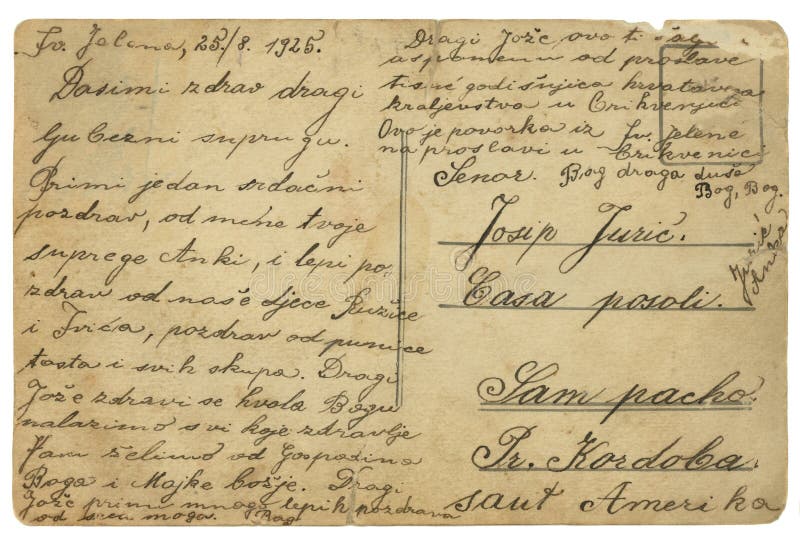 Sv. Jelena, 25./8. 1925.
Dasimi zdrav dragi
ljubezni suprugu.
Primi jedan srdačni
pozdrav, od mene tvoje
suprege Anki, i lepi po
zdrav od naše djece Ružice
i Ivića, pozdrav od punice
tasta i svih skupa. Dragi
Jože zdravi se hvala Bogu
nalazimo svi koje zdravlje
Vam želimo od Gospodina
Boga i Majke božje. Dragi
Jože primi mnogo lepih pozdrava
od srca moga. Bog
Dragi Jože ovo ti
uspomenu od proslave
tisuć godišnjica hrvatavoga
kraljevstva u Crikvenjici
Ovo je povorka iz Sv. Jelene
na proslavi u Crikvenici
Bog draga duše
Bog, Bog.
Jurić
Anka
Senor.
Josip Jurić.
Casa posoli.
Sam pacho.
Pr. Kordoba.
saut Amerika
dreamstime